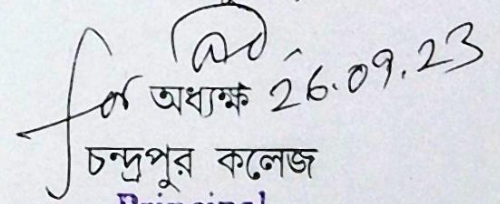 for অধ্যক্ষ 26.09.23
চন্দ্রপুর কলেজ
Principal